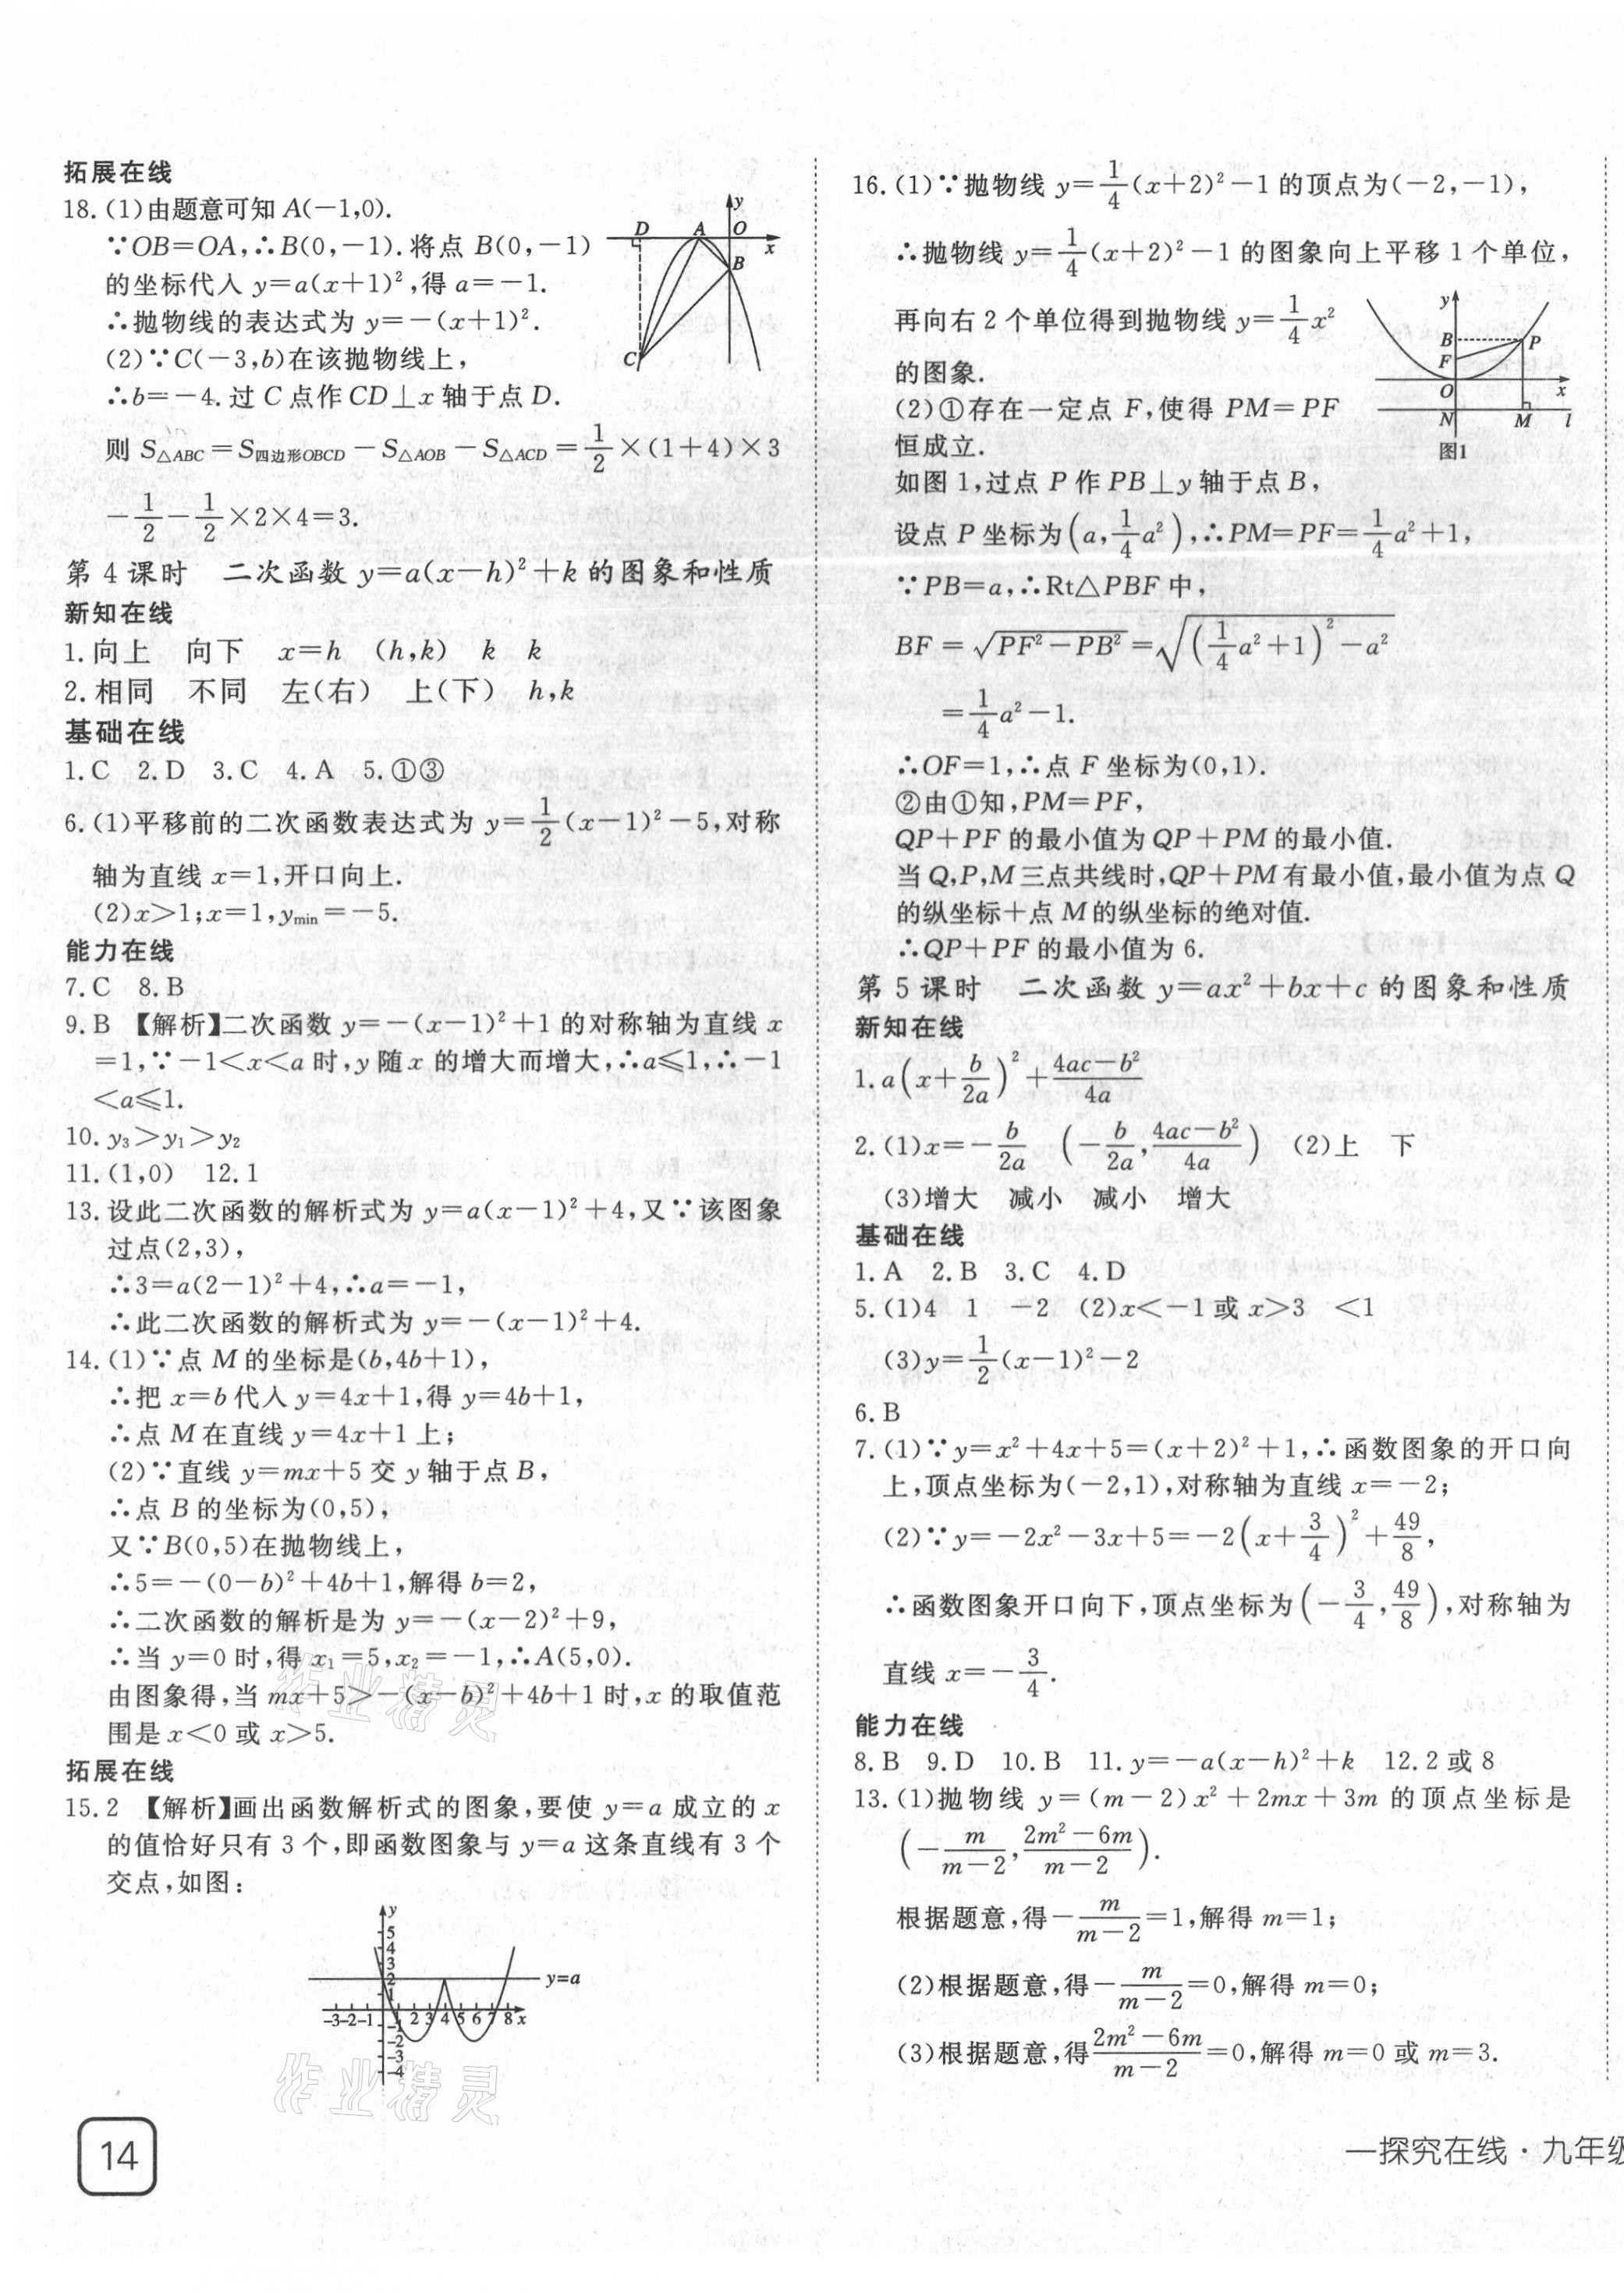 拓展在线
18.(1)由题意可知 A(-1,0).
∵OB=OA,∴B(0,-1).将点 B(0,-1)
的坐标代入 y=a(x+1)²,得 a=-1.
∴抛物线的表达式为 y=-(x+1)².
(2)∵C(-3,b)在该抛物线上,
∴b=-4.过 C 点作 CD⊥x 轴于点 D.
则 S△ABC=S四边形OBCD-S△AOB-S△ACD=1/2×(1+4)×3
-1/2-1/2×2×4=3.
D A O y x B C
第 4 课时 二次函数 y=a(x-h)²+k 的图象和性质
新知在线
1.向上 向下 x=h (h,k) k k
2.相同 不同 左(右) 上(下) h,k
基础在线
1.C 2.D 3.C 4.A 5.①③
6.(1)平移前的二次函数表达式为 y=1/2(x-1)²-5,对称
轴为直线 x=1,开口向上.
(2)x>1;x=1,ymin=-5.
能力在线
7.C 8.B
9.B 【解析】二次函数 y=-(x-1)²+1 的对称轴为直线 x
=1,∵-1<x<a 时,y 随 x 的增大而增大,∴a≤1,∴-1
<a≤1.
10.y₃>y₁>y₂
11.(1,0) 12.1
13.设此二次函数的解析式为 y=a(x-1)²+4,又∵该图象
过点(2,3),
∴3=a(2-1)²+4,∴a=-1,
∴此二次函数的解析式为 y=-(x-1)²+4.
14.(1)∵点 M 的坐标是(b,4b+1),
∴把 x=b 代入 y=4x+1,得 y=4b+1,
∴点 M 在直线 y=4x+1 上;
(2)∵直线 y=mx+5 交 y 轴于点 B,
∴点 B 的坐标为(0,5),
又∵B(0,5)在抛物线上,
∴5=-(0-b)²+4b+1,解得 b=2,
∴二次函数的解析是为 y=-(x-2)²+9,
∴当 y=0 时,得 x₁=5,x₂=-1,∴A(5,0).
由图象得,当 mx+5>-(x-b)²+4b+1 时,x 的取值范
围是 x<0 或 x>5.
拓展在线
15.2 【解析】画出函数解析式的图象,要使 y=a 成立的 x
的值恰好只有 3 个,即函数图象与 y=a 这条直线有 3 个
交点,如图:
y
5
4
3
2
1
y=a
-3-2-1 1 2 3 4 5 6 7 8 x
-1
-2
-3
-4
作业精灵
作业精灵
14
16.(1)∵抛物线 y=1/4(x+2)²-1 的顶点为(-2,-1),
∴抛物线 y=1/4(x+2)²-1 的图象向上平移 1 个单位,
再向右 2 个单位得到抛物线 y=1/4x²
的图象.
(2)①存在一定点 F,使得 PM=PF
恒成立.
y B P F O x N M l
图1
如图 1,过点 P 作 PB⊥y 轴于点 B,
设点 P 坐标为(a,1/4a²),∴PM=PF=1/4a²+1,
∵PB=a,∴Rt△PBF 中,
BF=√(PF²-PB²)=√((1/4a²+1)²-a²)
=1/4a²-1.
∴OF=1,∴点 F 坐标为(0,1).
②由①知,PM=PF,
QP+PF 的最小值为 QP+PM 的最小值.
当 Q,P,M 三点共线时,QP+PM 有最小值,最小值为点 Q
的纵坐标+点 M 的纵坐标的绝对值.
∴QP+PF 的最小值为 6.
第 5 课时 二次函数 y=ax²+bx+c 的图象和性质
新知在线
1.a(x+b/2a)²+(4ac-b²)/4a
2.(1)x=-b/2a (-b/2a,(4ac-b²)/4a) (2)上 下
(3)增大 减小 减小 增大
基础在线
1.A 2.B 3.C 4.D
5.(1)4 1 -2 (2)x<-1 或 x>3 <1
(3)y=1/2(x-1)²-2
6.B
7.(1)∵y=x²+4x+5=(x+2)²+1,∴函数图象的开口向
上,顶点坐标为(-2,1),对称轴为直线 x=-2;
(2)∵y=-2x²-3x+5=-2(x+3/4)²+49/8,
∴函数图象开口向下,顶点坐标为(-3/4,49/8),对称轴为
直线 x=-3/4.
能力在线
8.B 9.D 10.B 11.y=-a(x-h)²+k 12.2 或 8
13.(1)抛物线 y=(m-2)x²+2mx+3m 的顶点坐标是
(-m/(m-2),(2m²-6m)/(m-2)).
根据题意,得-m/(m-2)=1,解得 m=1;
(2)根据题意,得-m/(m-2)=0,解得 m=0;
(3)根据题意,得(2m²-6m)/(m-2)=0,解得 m=0 或 m=3.
—探究在线·九年级